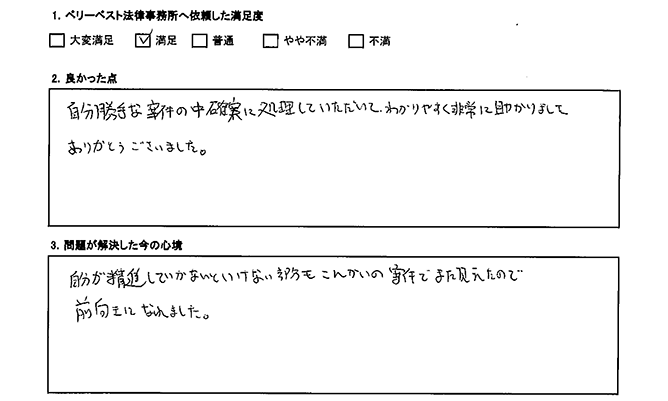 1. ベリーベスト法律事務所へ依頼した満足度
□ 大変満足 ☑ 満足 □ 普通 □ やや不満 □ 不満
2. 良かった点
自分勝手な案件の中確実に処理していただいて、わかりやすく非常に助かりまして
ありがとうございました。
3. 問題が解決した今の心境
自分が精進していかないといけない部分もこんかいの案件でまた見えたので
前向きになれました。